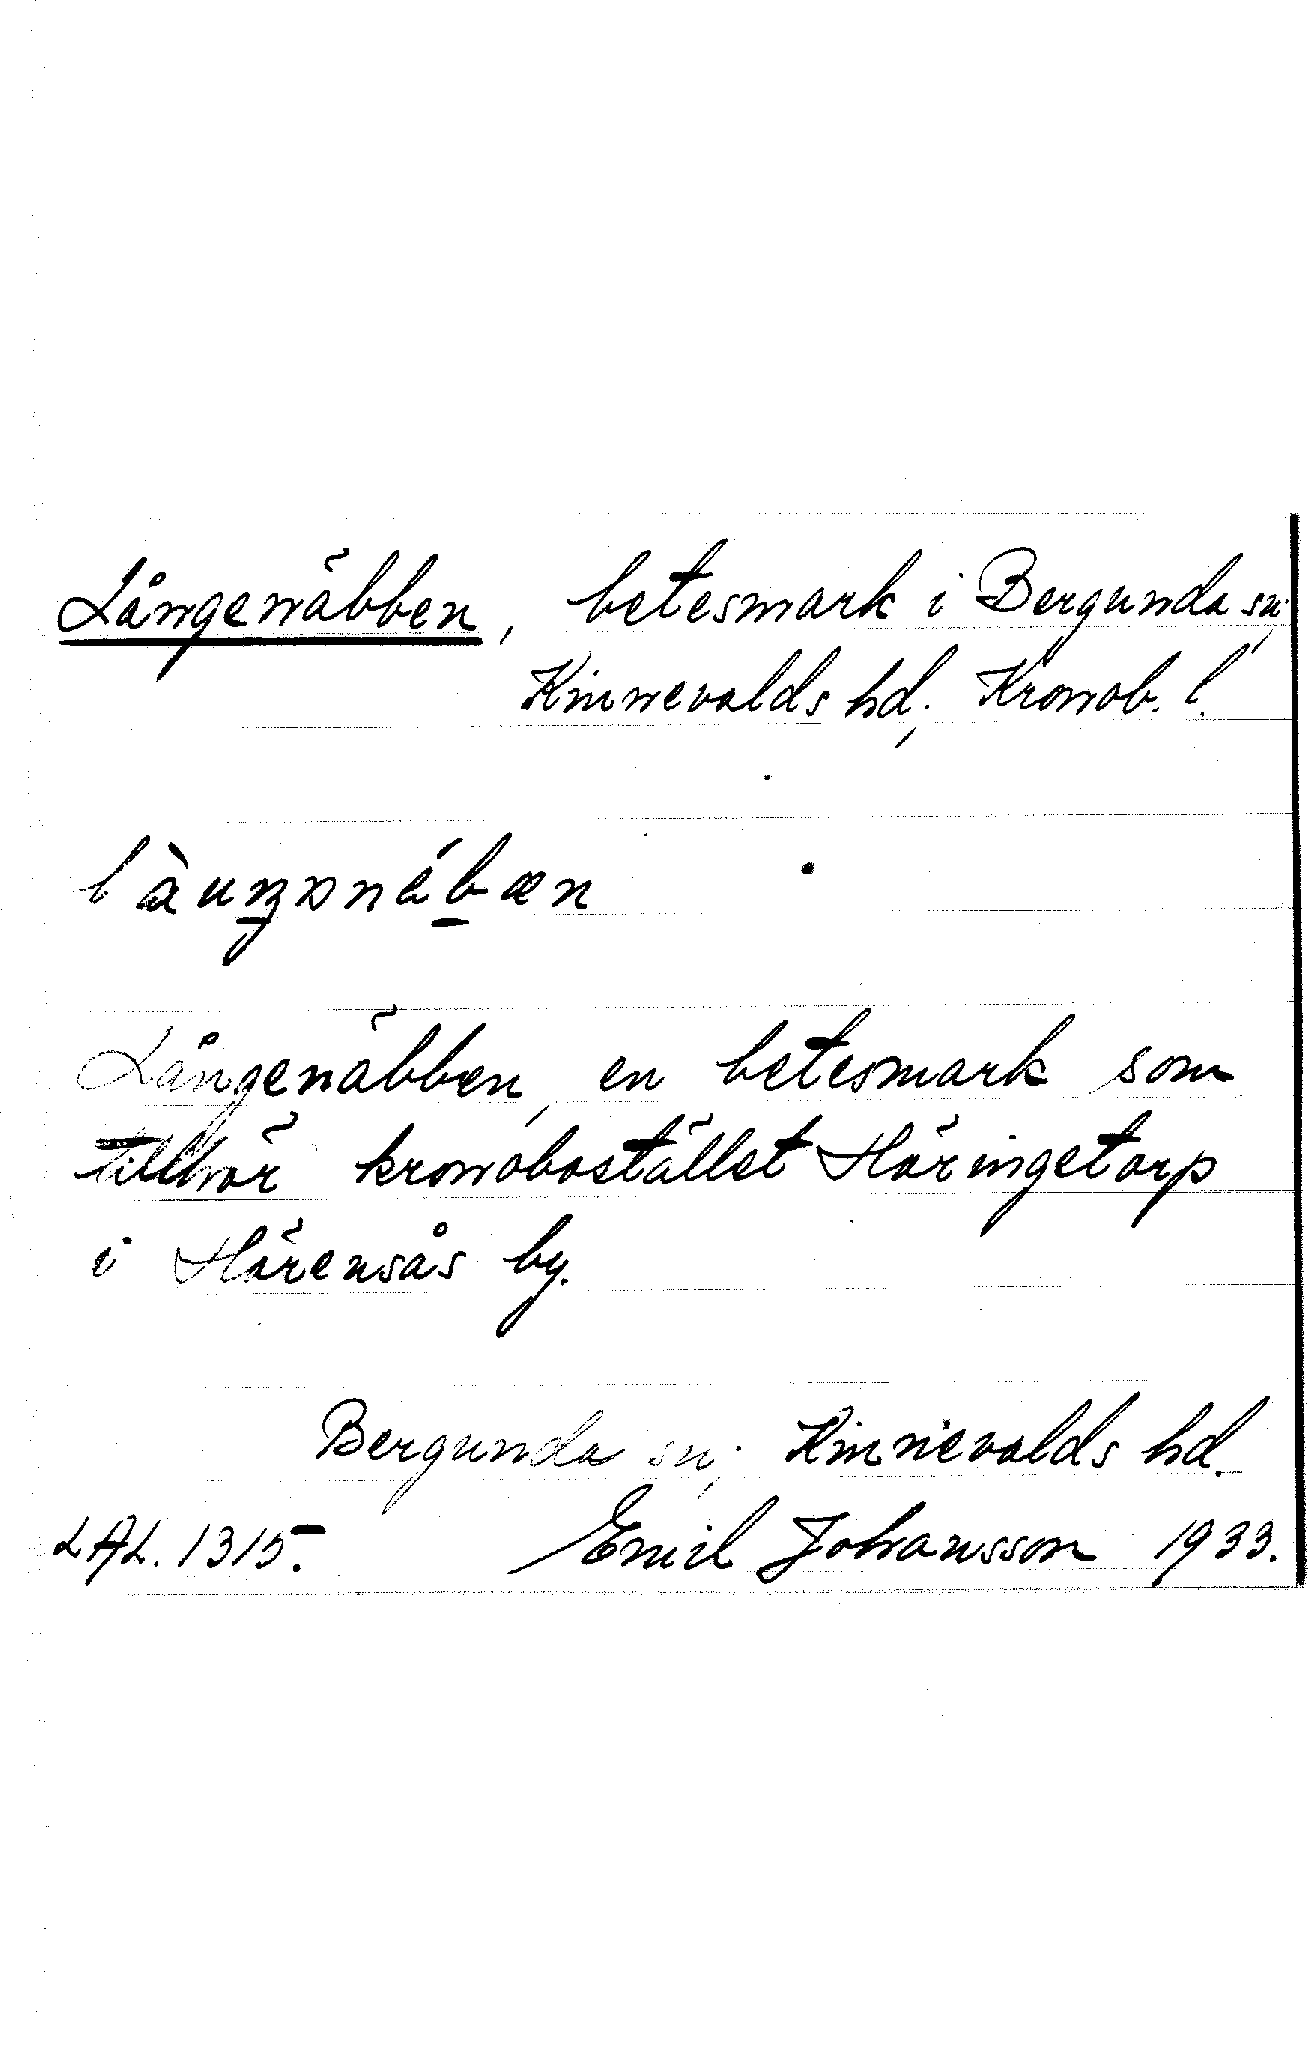 Långenäbben, betesmark i Bergunda sn;
Kinnevalds hd; Kronob. l.
Långenäbben, en betesmark som
tillhör kronobostället Häringetorp
i Härensås by.
Bergunda sn; Kinnevalds hd.
LAL. 1315. Emil Johansson 1933.